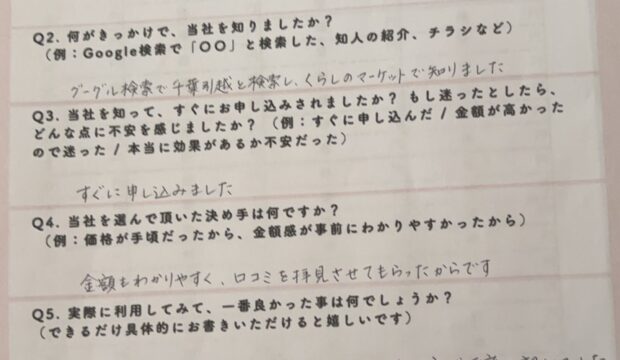 Q2. 何がきっかけで、当社を知りましたか？
（例：Google検索で「〇〇」と検索した、知人の紹介、チラシなど）
グーグル検索で千葉引越と検索し、くらしのマーケットで知りました
Q3. 当社を知って、すぐにお申し込みされましたか？ もし迷ったとしたら、
どんな点に不安を感じましたか？（例：すぐに申し込んだ / 金額が高かった
ので迷った / 本当に効果があるか不安だった）
すぐに申し込みました
Q4. 当社を選んで頂いた決め手は何ですか？
（例：価格が手頃だったから、金額感が事前にわかりやすかったから）
金額もわかりやすく、口コミを拝見させてもらったからです
Q5. 実際に利用してみて、一番良かった事は何でしょうか？
（できるだけ具体的にお書きいただけると嬉しいです）